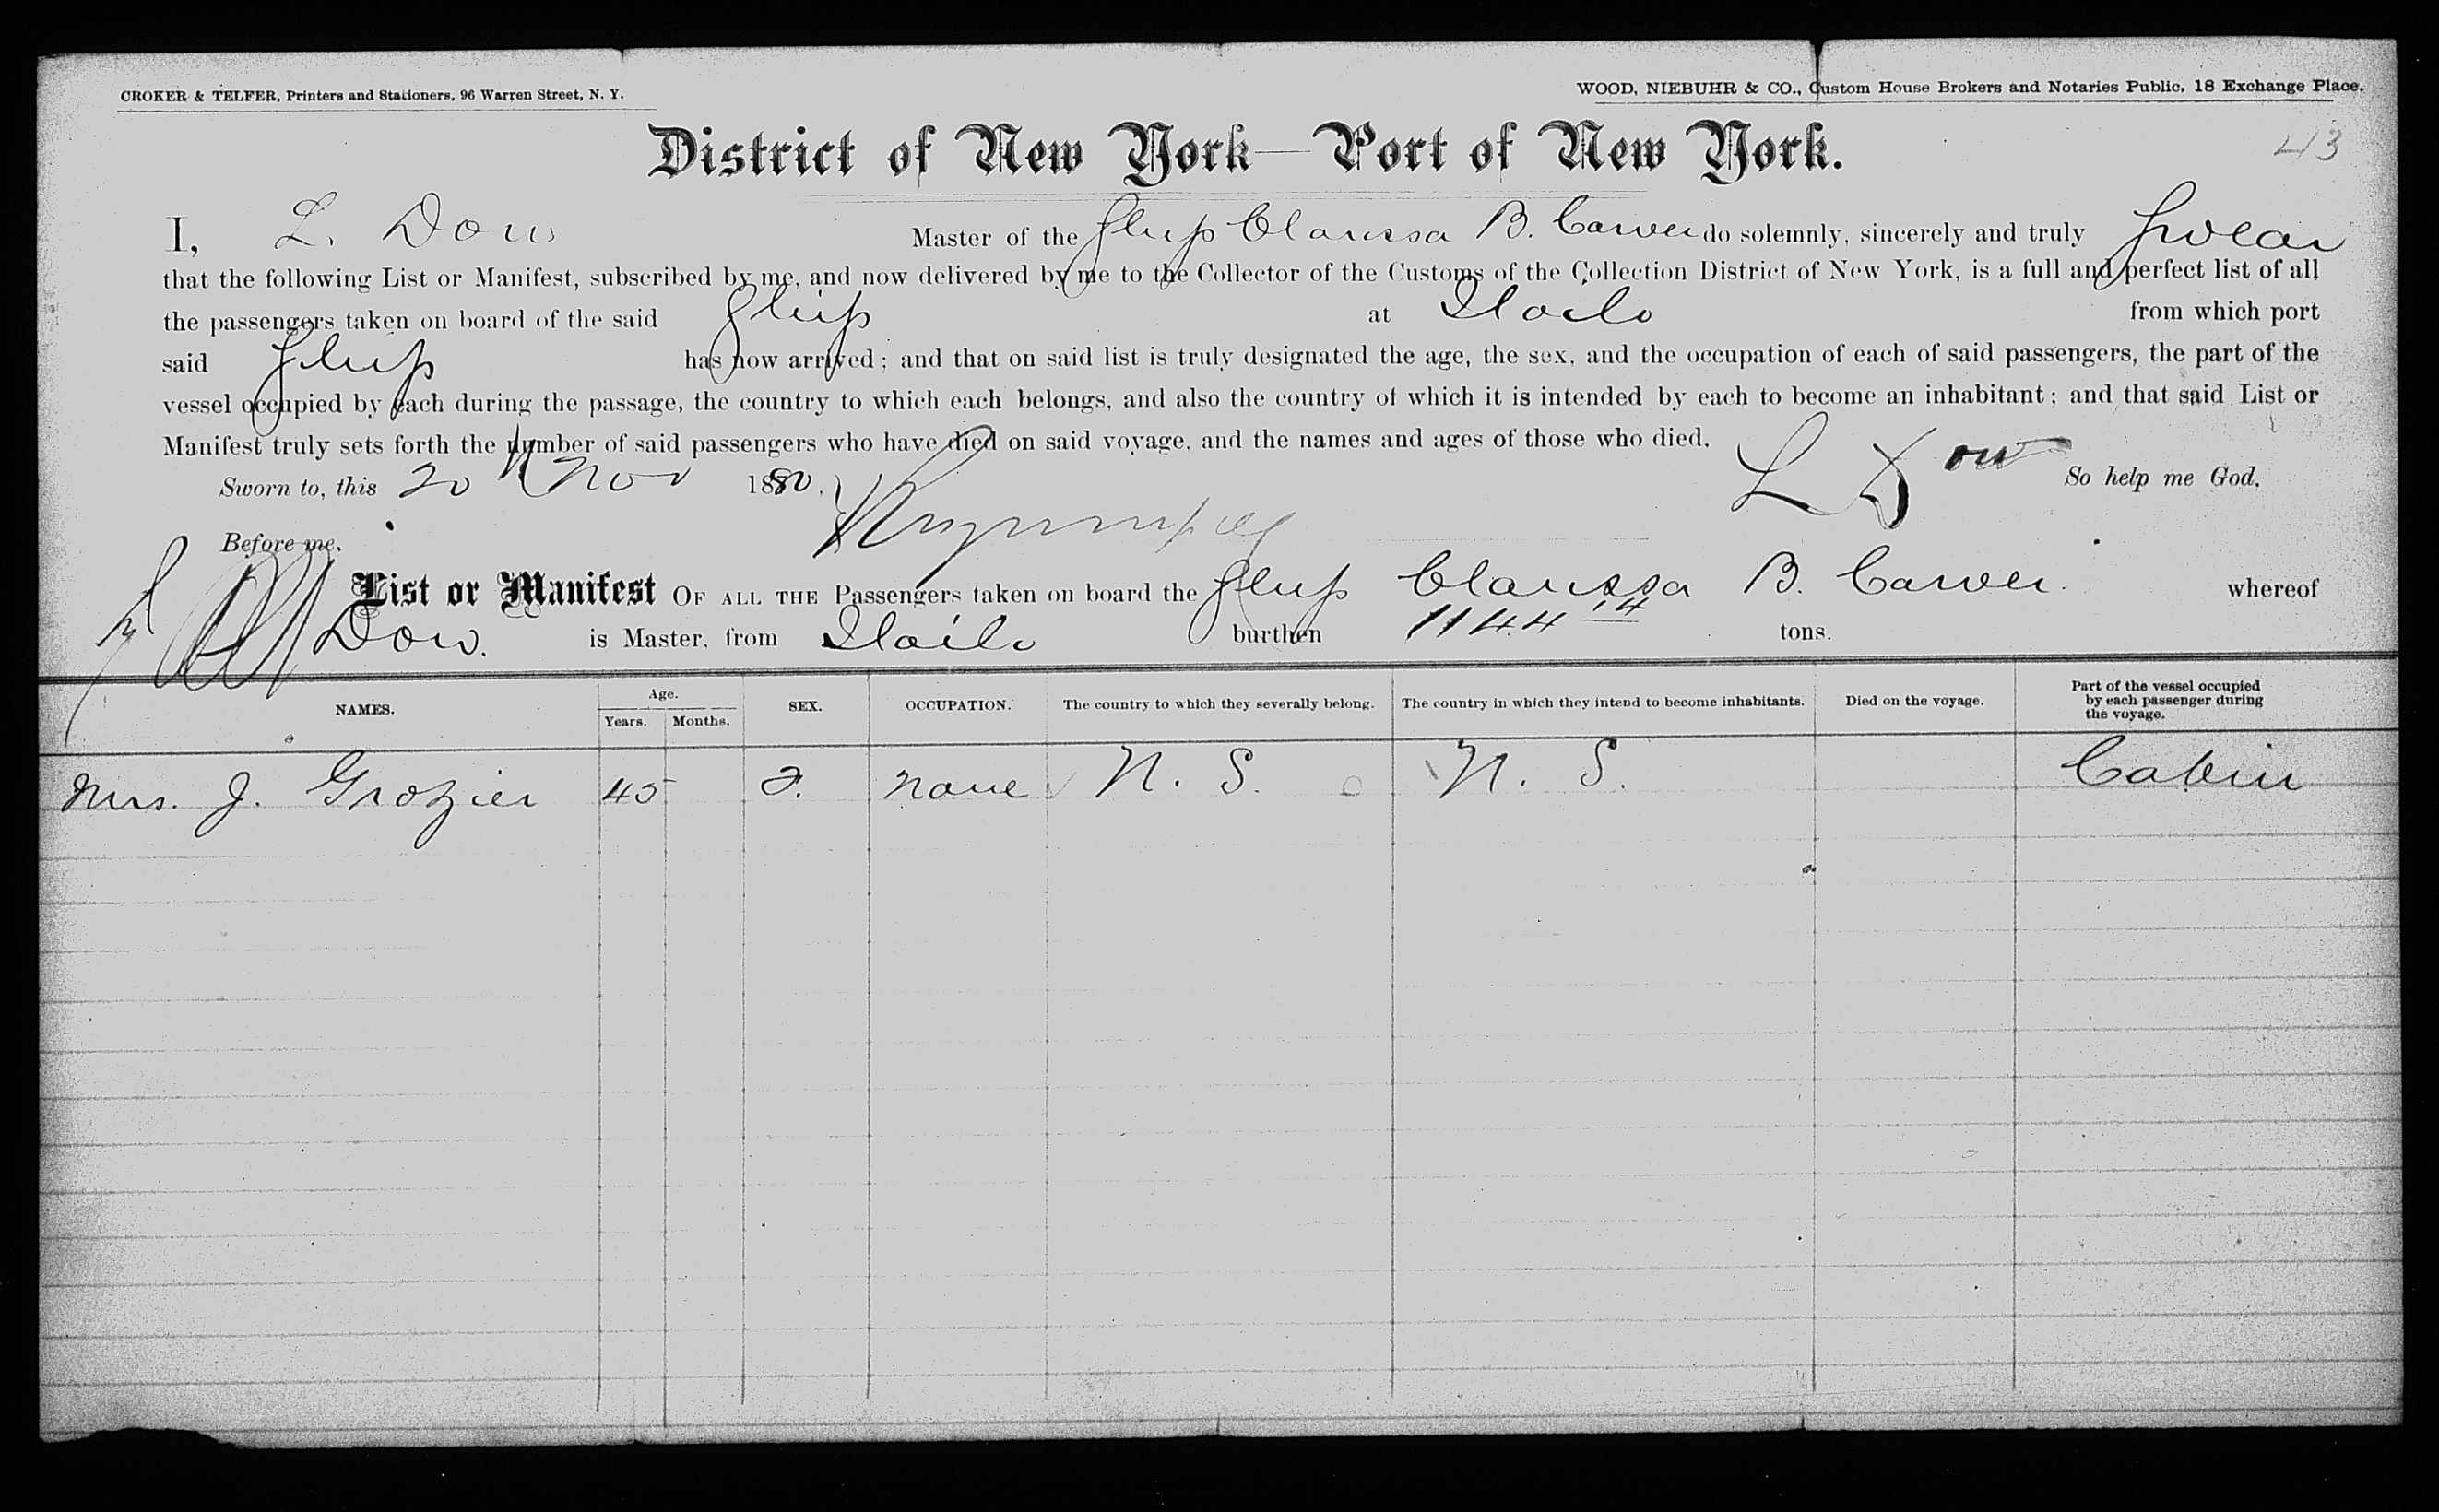 CROKER & TELFER, Printers and Stationers, 96 Warren Street, N. Y.
WOOD, NIEBUHR & CO., Custom House Brokers and Notaries Public, 18 Exchange Place.
District of New York—Port of New York.
43
I, L. Dow Master of the Ship Clarissa B. Carver do solemnly, sincerely and truly Swear
that the following List or Manifest, subscribed by me, and now delivered by me to the Collector of the Customs of the Collection District of New York, is a full and perfect list of all
the passengers taken on board of the said Ship at Iloilo from which port
said Ship has now arrived; and that on said list is truly designated the age, the sex, and the occupation of each of said passengers, the part of the
vessel occupied by each during the passage, the country to which each belongs, and also the country of which it is intended by each to become an inhabitant; and that said List or
Manifest truly sets forth the number of said passengers who have died on said voyage, and the names and ages of those who died.
Sworn to, this 20 Nov 1880. L Dow So help me God.
Before me,
List or Manifest OF ALL THE Passengers taken on board the Ship Clarissa B. Carver. whereof
Dow. is Master, from Iloilo burthen 1144 14 tons.
NAMES. Age. Years. Months. SEX. OCCUPATION. The country to which they severally belong. The country in which they intend to become inhabitants. Died on the voyage. Part of the vessel occupied by each passenger during the voyage.
Mrs. J. Grozier 45 F. None N. S. N. S. Cabin